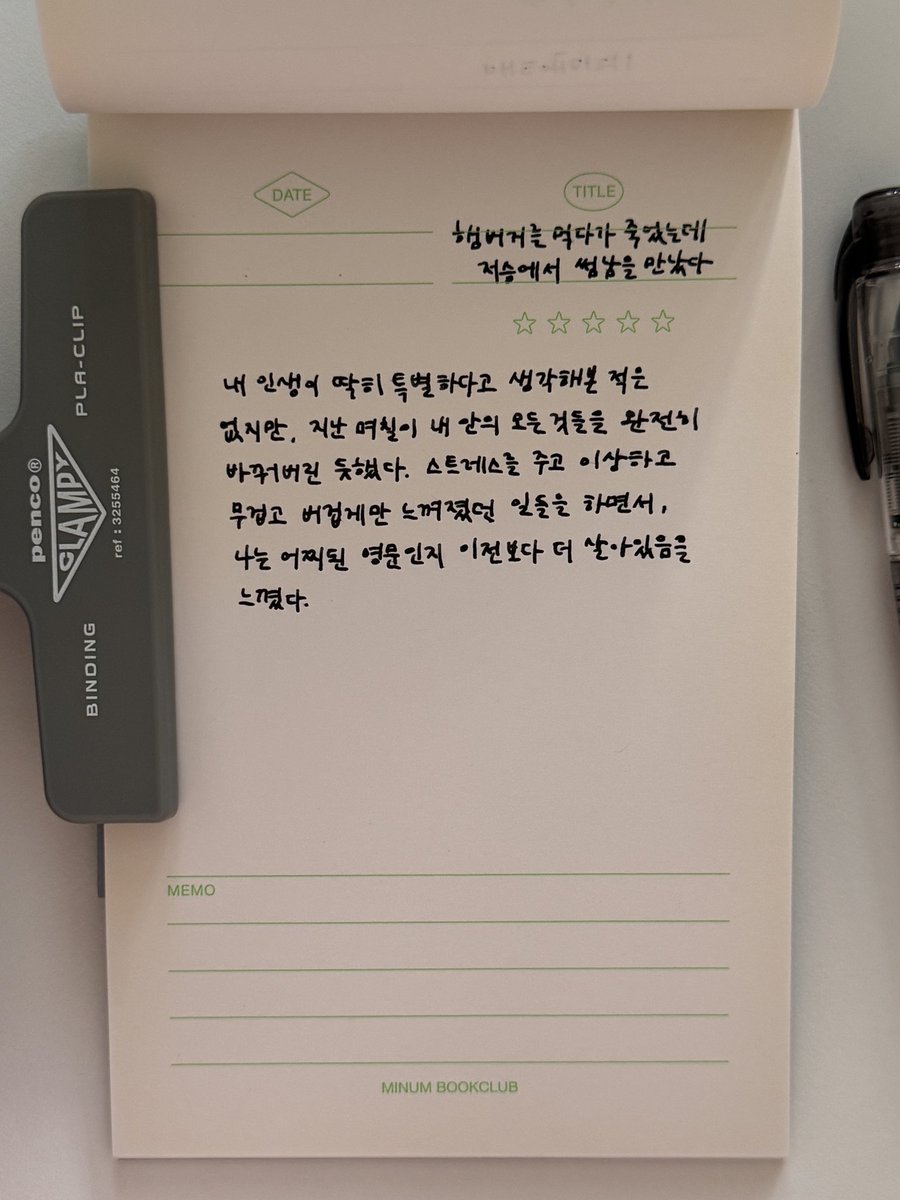 DATE
TITLE
햄버거를 먹다가 죽었는데
저승에서 썸남을 만났다
내 인생이 딱히 특별하다고 생각해본 적은
없지만, 지난 며칠이 내 안의 모든 것들을 완전히
바꿔버린 듯했다. 스트레스를 주고 이상하고
무겁고 버겁게만 느껴졌던 일들을 하면서,
나는 어찌된 영문인지 이전보다 더 살아있음을
느꼈다.
MEMO
MINUM BOOKCLUB
PLA-CLIP
penco®
CLAMPY
ref : 3255464
BINDING